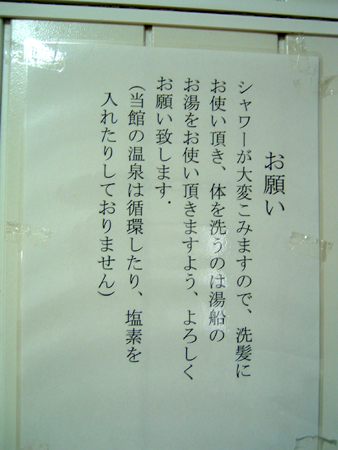 お願い
シャワーが大変こみますので、洗髪に
お使い頂き、体を洗うのは湯船の
お湯をお使い頂きますよう、よろしく
お願い致します.
（当館の温泉は循環したり、塩素を
入れたりしておりません）